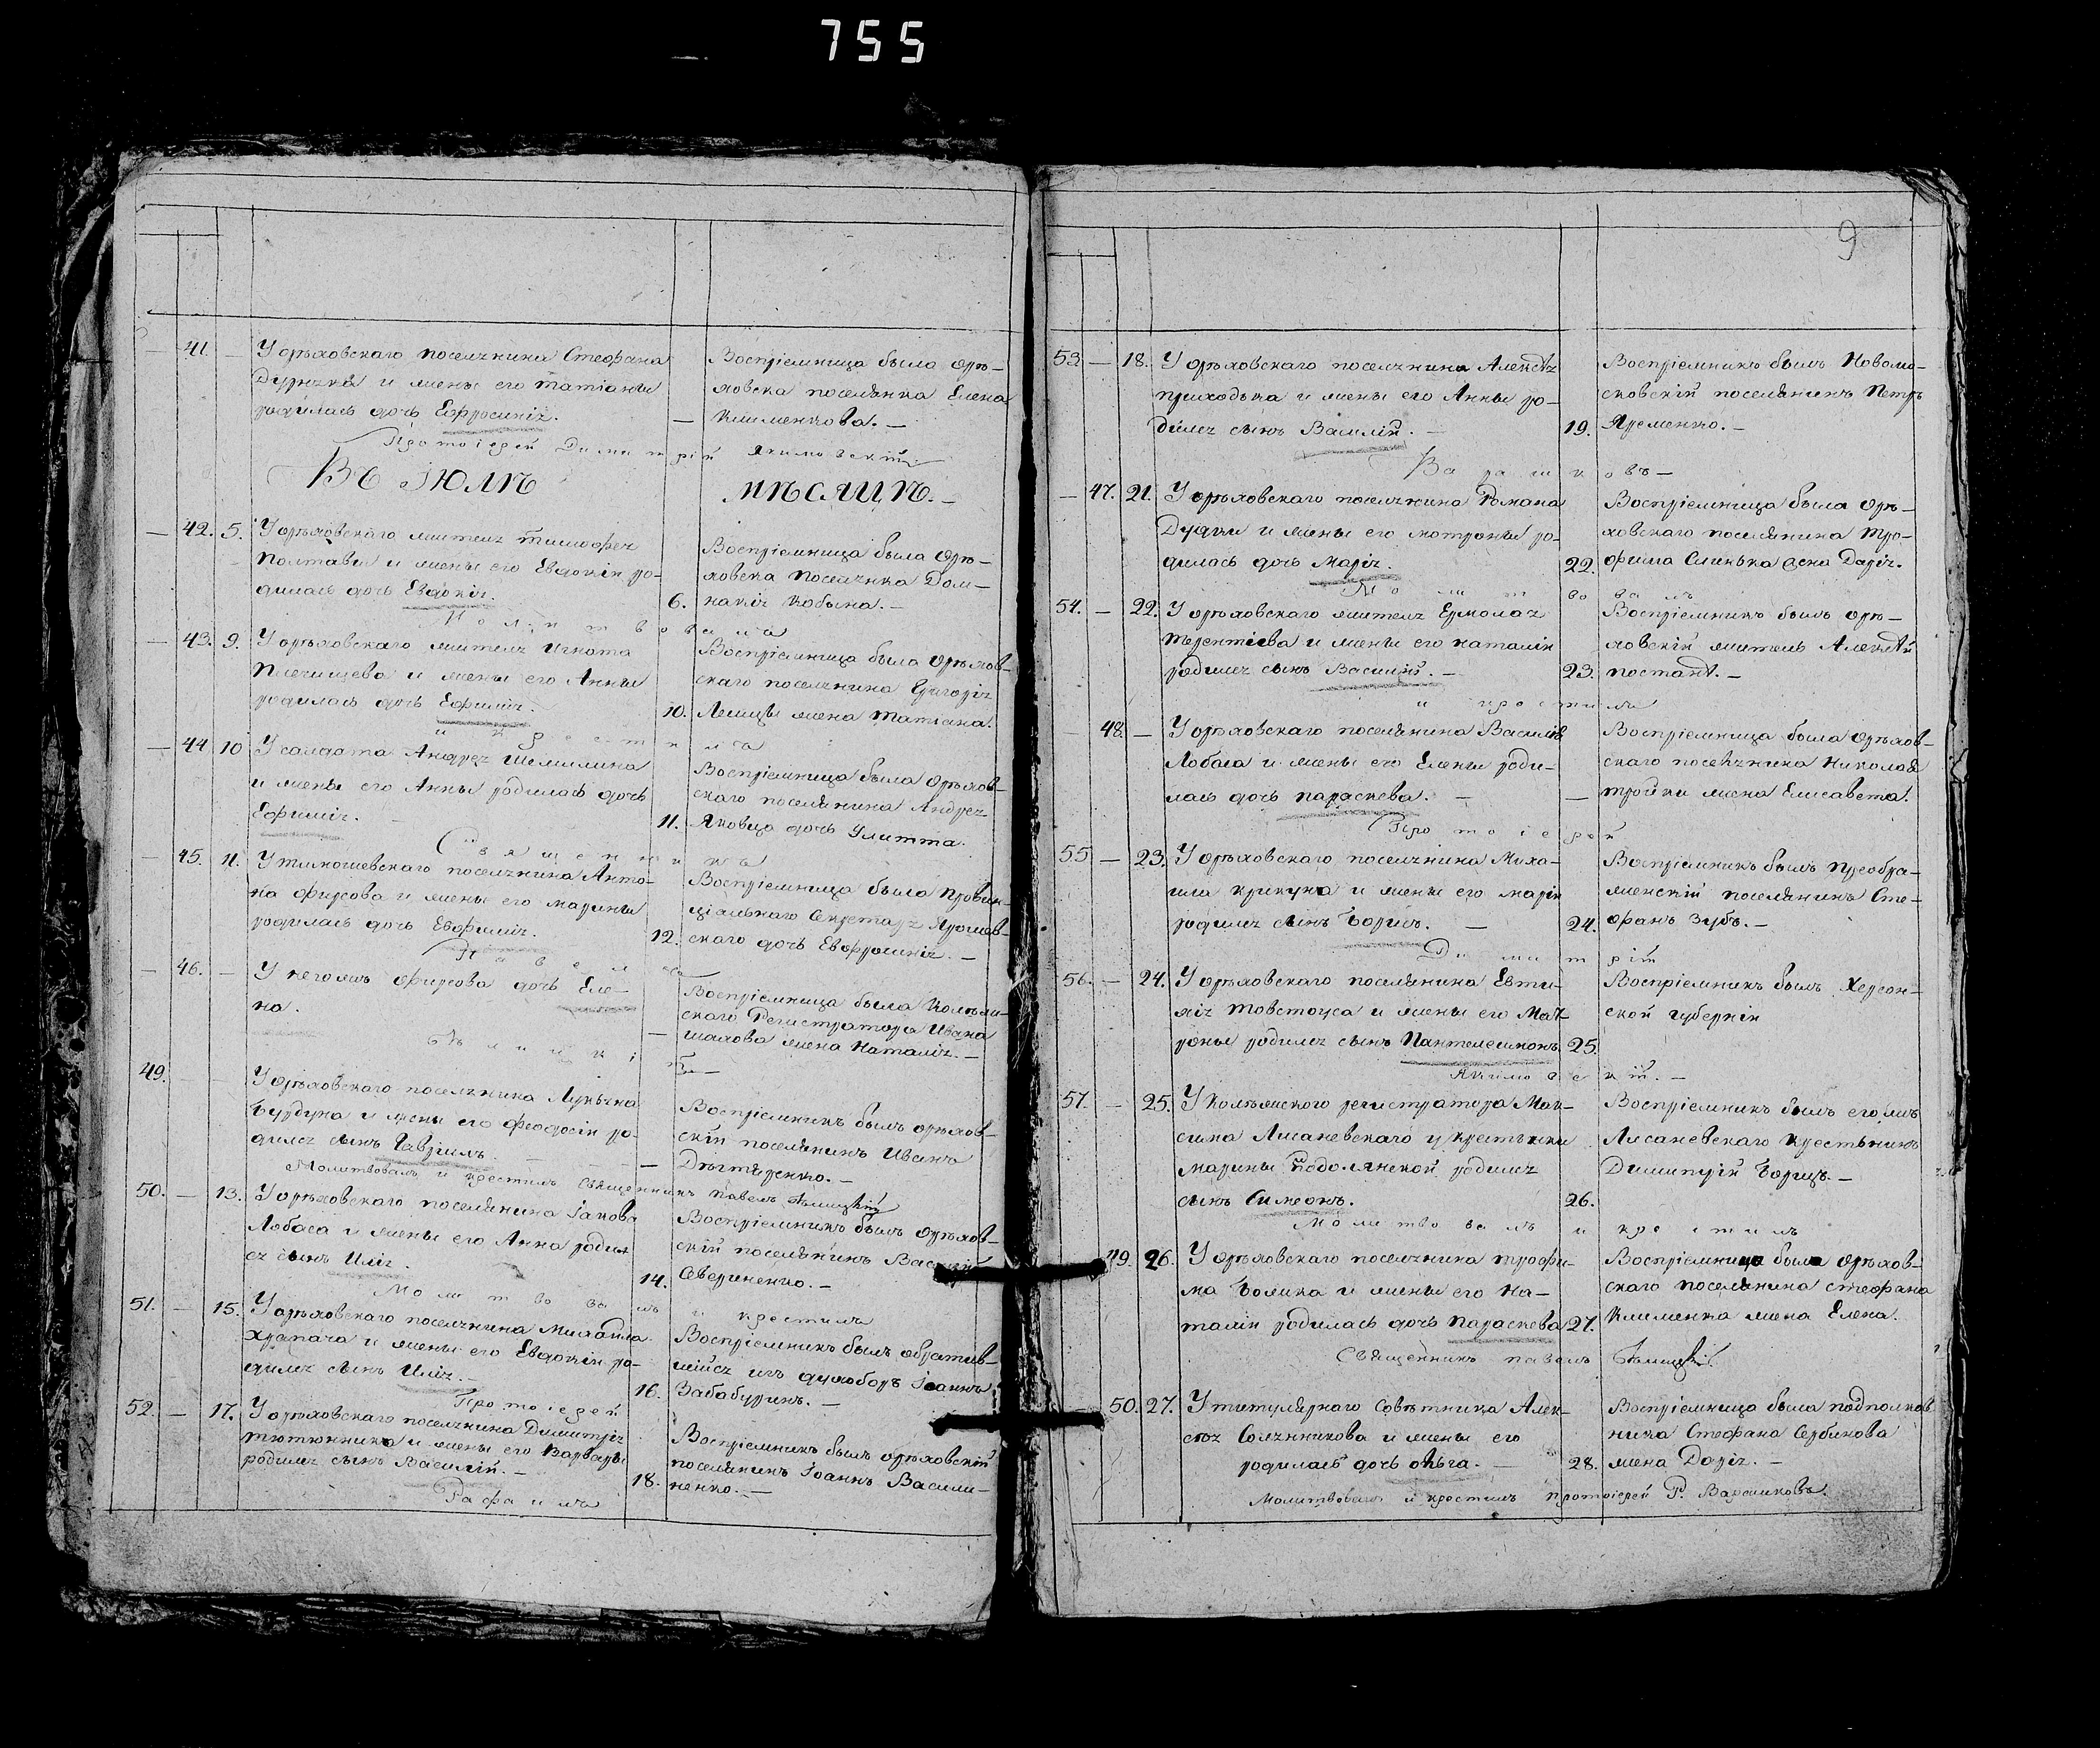 755
41. — Уорѣховскаго поселянина Стефана
Дурняка и жены его татіаны
родилась дочь Ефросинія. —
Воспріемница была орѣ-
ховска поселянка Елена
Клименкова. —
Протоіерей Димитрій Якимовскій
Въ Іюлѣ мѣсяцѣ. —
— 42. 5. Уорѣховскаго жителя тимофея
Полтавы и жены его Евдокіи ро-
дилась дочь Евдокія. 6.
Воспріемница была орѣ-
ховска поселянка Дом-
накія Кобына. —
Молитвовалъ
— 43. 9. Уорѣховскаго жителя Игната
Плечищева и жены его Анны
родилась дочь Ефимія. 10.
Воспріемница была орѣхов-
скаго поселянина Григорія
жена татіана.
и крестилъ
— 44 10 Усалдата Андрея Шемилина
и жены его Анны родилась дочь
Ефимія. 11.
Воспріемница была орѣхов-
скаго поселянина Андрея
Яковца дочь Улитта.
Священникъ
— 45. 11. Утимошевскаго поселянина Анто-
на Фирсова и жены его марины
родилась дочь Евфимія. 12.
Воспріемница была Провин-
ціальнаго Секретаря Ярошев-
скаго дочь Евфросинія. —
Павелъ
— 46. — У негожъ Фирсова дочь Еле-
на. —
Воспріемница была Колѣжи-
скаго Регистратора Ивана
жена Наталія. —
49. — — Уорѣховскаго поселянина Лукьяна
Бурдуна и жены его феодосіи ро-
дился сынъ Гавріилъ. —
Воспріемникъ былъ орѣхов-
скій поселянинъ Иванъ
Дѣгтяренко. —
Молитвовалъ и крестилъ Священникъ Павелъ
50. — 13. Уорѣховскаго поселянина Іакова
Лобаса и жены его Анна родил
ся сынъ Илія. 14.
Воспріемникъ былъ орѣхов-
скій поселянинъ Василій
Севериненко. —
Молитвовалъ и крестилъ
51. — 15. Уорѣховскаго поселянина Михаила
Храпача и жены его Евдокіи ро-
дился сынъ Илія. — 16.
Воспріемникъ былъ обратив-
шійся изъ духоборъ Іоаннъ
Забабуринъ. —
Протоіерей
52. — 17. Уорѣховскаго поселянина Димитрія
тютюнника и жены его Варвары
родился сынъ Василій. — 18.
Воспріемникъ былъ орѣховскій
поселянинъ Іоаннъ Васили-
ненко. —
Рафаилъ
9
53 — 18. Уорѣховскаго поселянина Алексѣя
приходька и жены его Анны ро-
дился сынъ Василій. — 19.
Воспріемникъ былъ Новомо-
сковскій поселянинъ Петръ
Яременко. —
— 47. 21. Уорѣховскаго поселянина Романа
Дудки и жены его мотроны ро-
дилась дочь марія. 22.
Воспріемница была орѣ-
ховскаго поселянина Тро-
фима Слинька жена Дарія.
Молитвовалъ
54. — 22. Уорѣховскаго жителя Ермолая
терентіева и жены его наталіи
родился сынъ Василій. — 23.
Воспріемникъ былъ орѣ-
ховскій житель Алексѣй
и крестилъ
— 48. — Уорѣховскаго поселянина Василія
Лобаса и жены его Елены роди-
лась дочь параскева. — —
Воспріемница была орѣхов-
скаго поселянина Николая
тройки жена Елисавета.
Протоіерей
55 — 23. Уорѣховскаго поселянина Миха-
ила крикуна и жены его маріи
родился сынъ Борисъ. — 24.
Воспріемникъ былъ преобра-
женскій поселянинъ Сте-
фанъ Зубъ. —
Димитрій
56. — 24. Уорѣховскаго поселянина Евти-
хія товстоуса и жены его Мат-
роны родился сынъ Пантелеимонъ 25.
Воспріемникъ былъ Херсон-
ской губерніи
Якимовскій. —
57. — 25. Уколѣжскаго регистратора Мак-
сима Лисаневскаго укрестьянки
марины Подолянской родился
сынъ Симеонъ. 26.
Воспріемникъ былъ егожъ
Лисаневскаго крестьянинъ
Димитрій Борицъ. —
Молитвовалъ и крестилъ
49. 26. Уорѣховскаго поселянина трофи-
ма Бомика и жены его На-
таліи родилась дочь параскева 27.
Воспріемница была орѣхов-
скаго поселянина стефана
Клименка жена Елена.
Священникъ павелъ
50. 27. Утитулярнаго Совѣтника Алек-
сѣя Солянникова и жены его
родилась дочь ольга. — 28.
Воспріемница была подполков
ника Стефана Сербинова
жена Дарія. —
Молитвовалъ и крестилъ протоіерей Р.